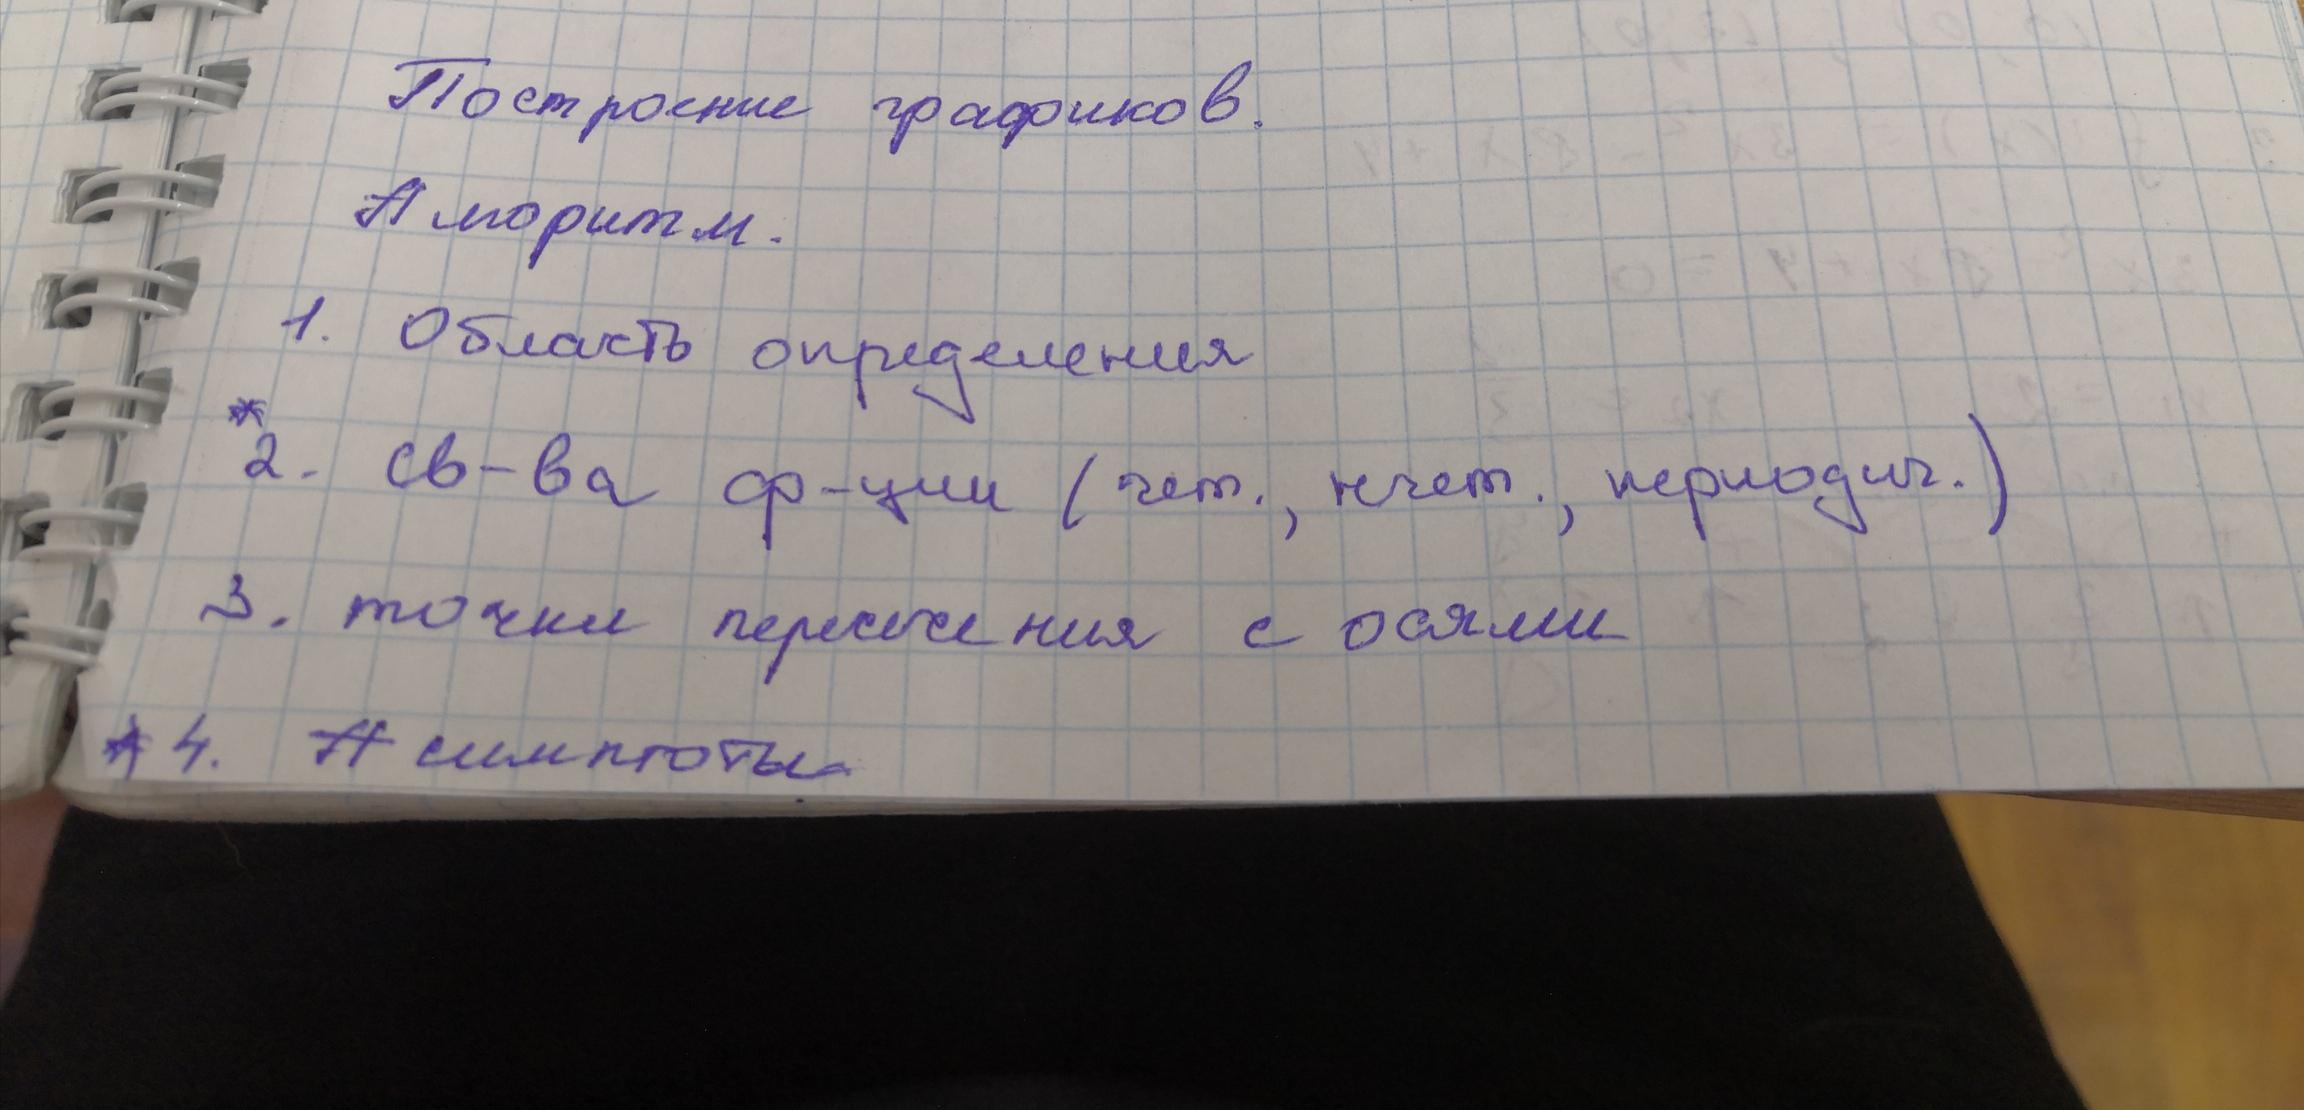 Построение графиков.
Алгоритм.
1. Область определения
*2. св-ва ф-ции (чет., нчет., периодич.)
3. точки пересечения с осями
*4. Асимптоты